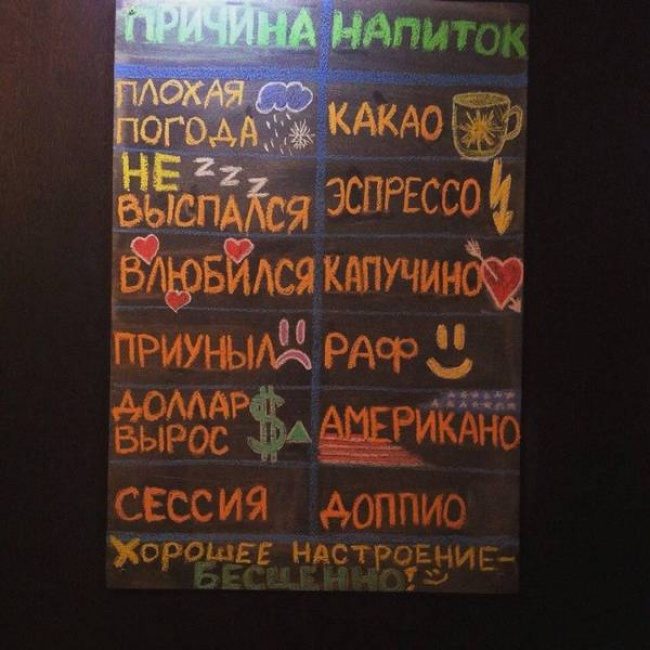 ПРИЧИНА НАПИТОК
ПЛОХАЯ
ПОГОДА КАКАО
НЕ zzz
ВЫСПАЛСЯ ЭСПРЕССО
ВЛЮБИЛСЯ КАПУЧИНО
ПРИУНЫЛ РАФ
ДОЛЛАР $
ВЫРОС АМЕРИКАНО
СЕССИЯ ДОППИО
ХОРОШЕЕ НАСТРОЕНИЕ-
БЕСЦЕННО!